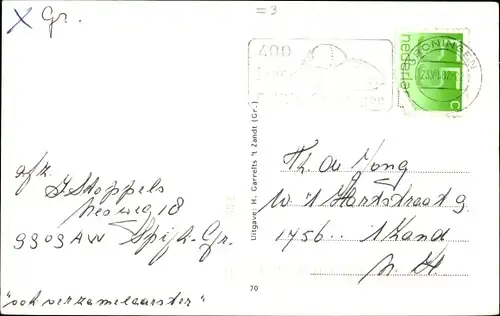 X Gr.
= 3
400
GRONINGEN
nederland
c
Uitgave: H. Garrelts 't Zandt (Gr.)
afz.
J Stoppels
Nesweg 18
9909 AW Spijk-Gr.
Th. de Jong
W. 't Hartstraat 9
1756.. 't Zand
N. H.
70
"ook verzamelaarster"